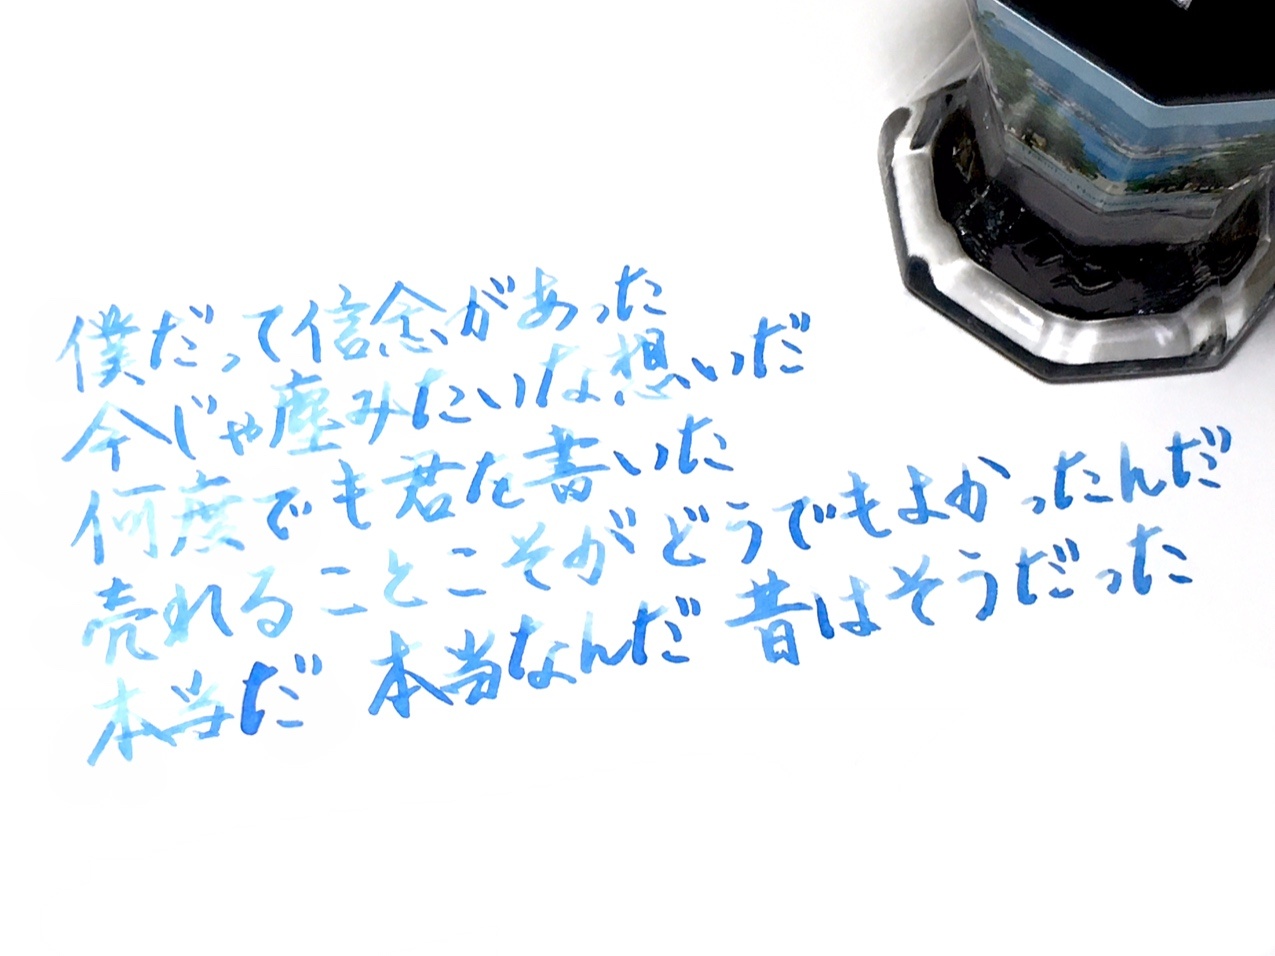 僕だって信念があった
今じゃ塵みたいな想いだ
何度でも君を書いた
売れることこそがどうでもよかったんだ
本当だ 本当なんだ 昔はそうだった